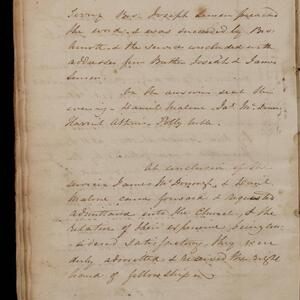 Bro. Joseph preached
the word, & was succeeded by Bro.
& the service concluded with
addresses from Brother Joseph & James
On the anxious seat this
evening Harriet Malone Jas. McDonough
Harriet Polly Webb.
At conclusion of the
service James McDonough & Harriet
Malone came forward & requested
admittance into the Church, & the
relation of their experience being con-
sidered satisfactory, they were
duly admitted & received the right
hand of fellowship.